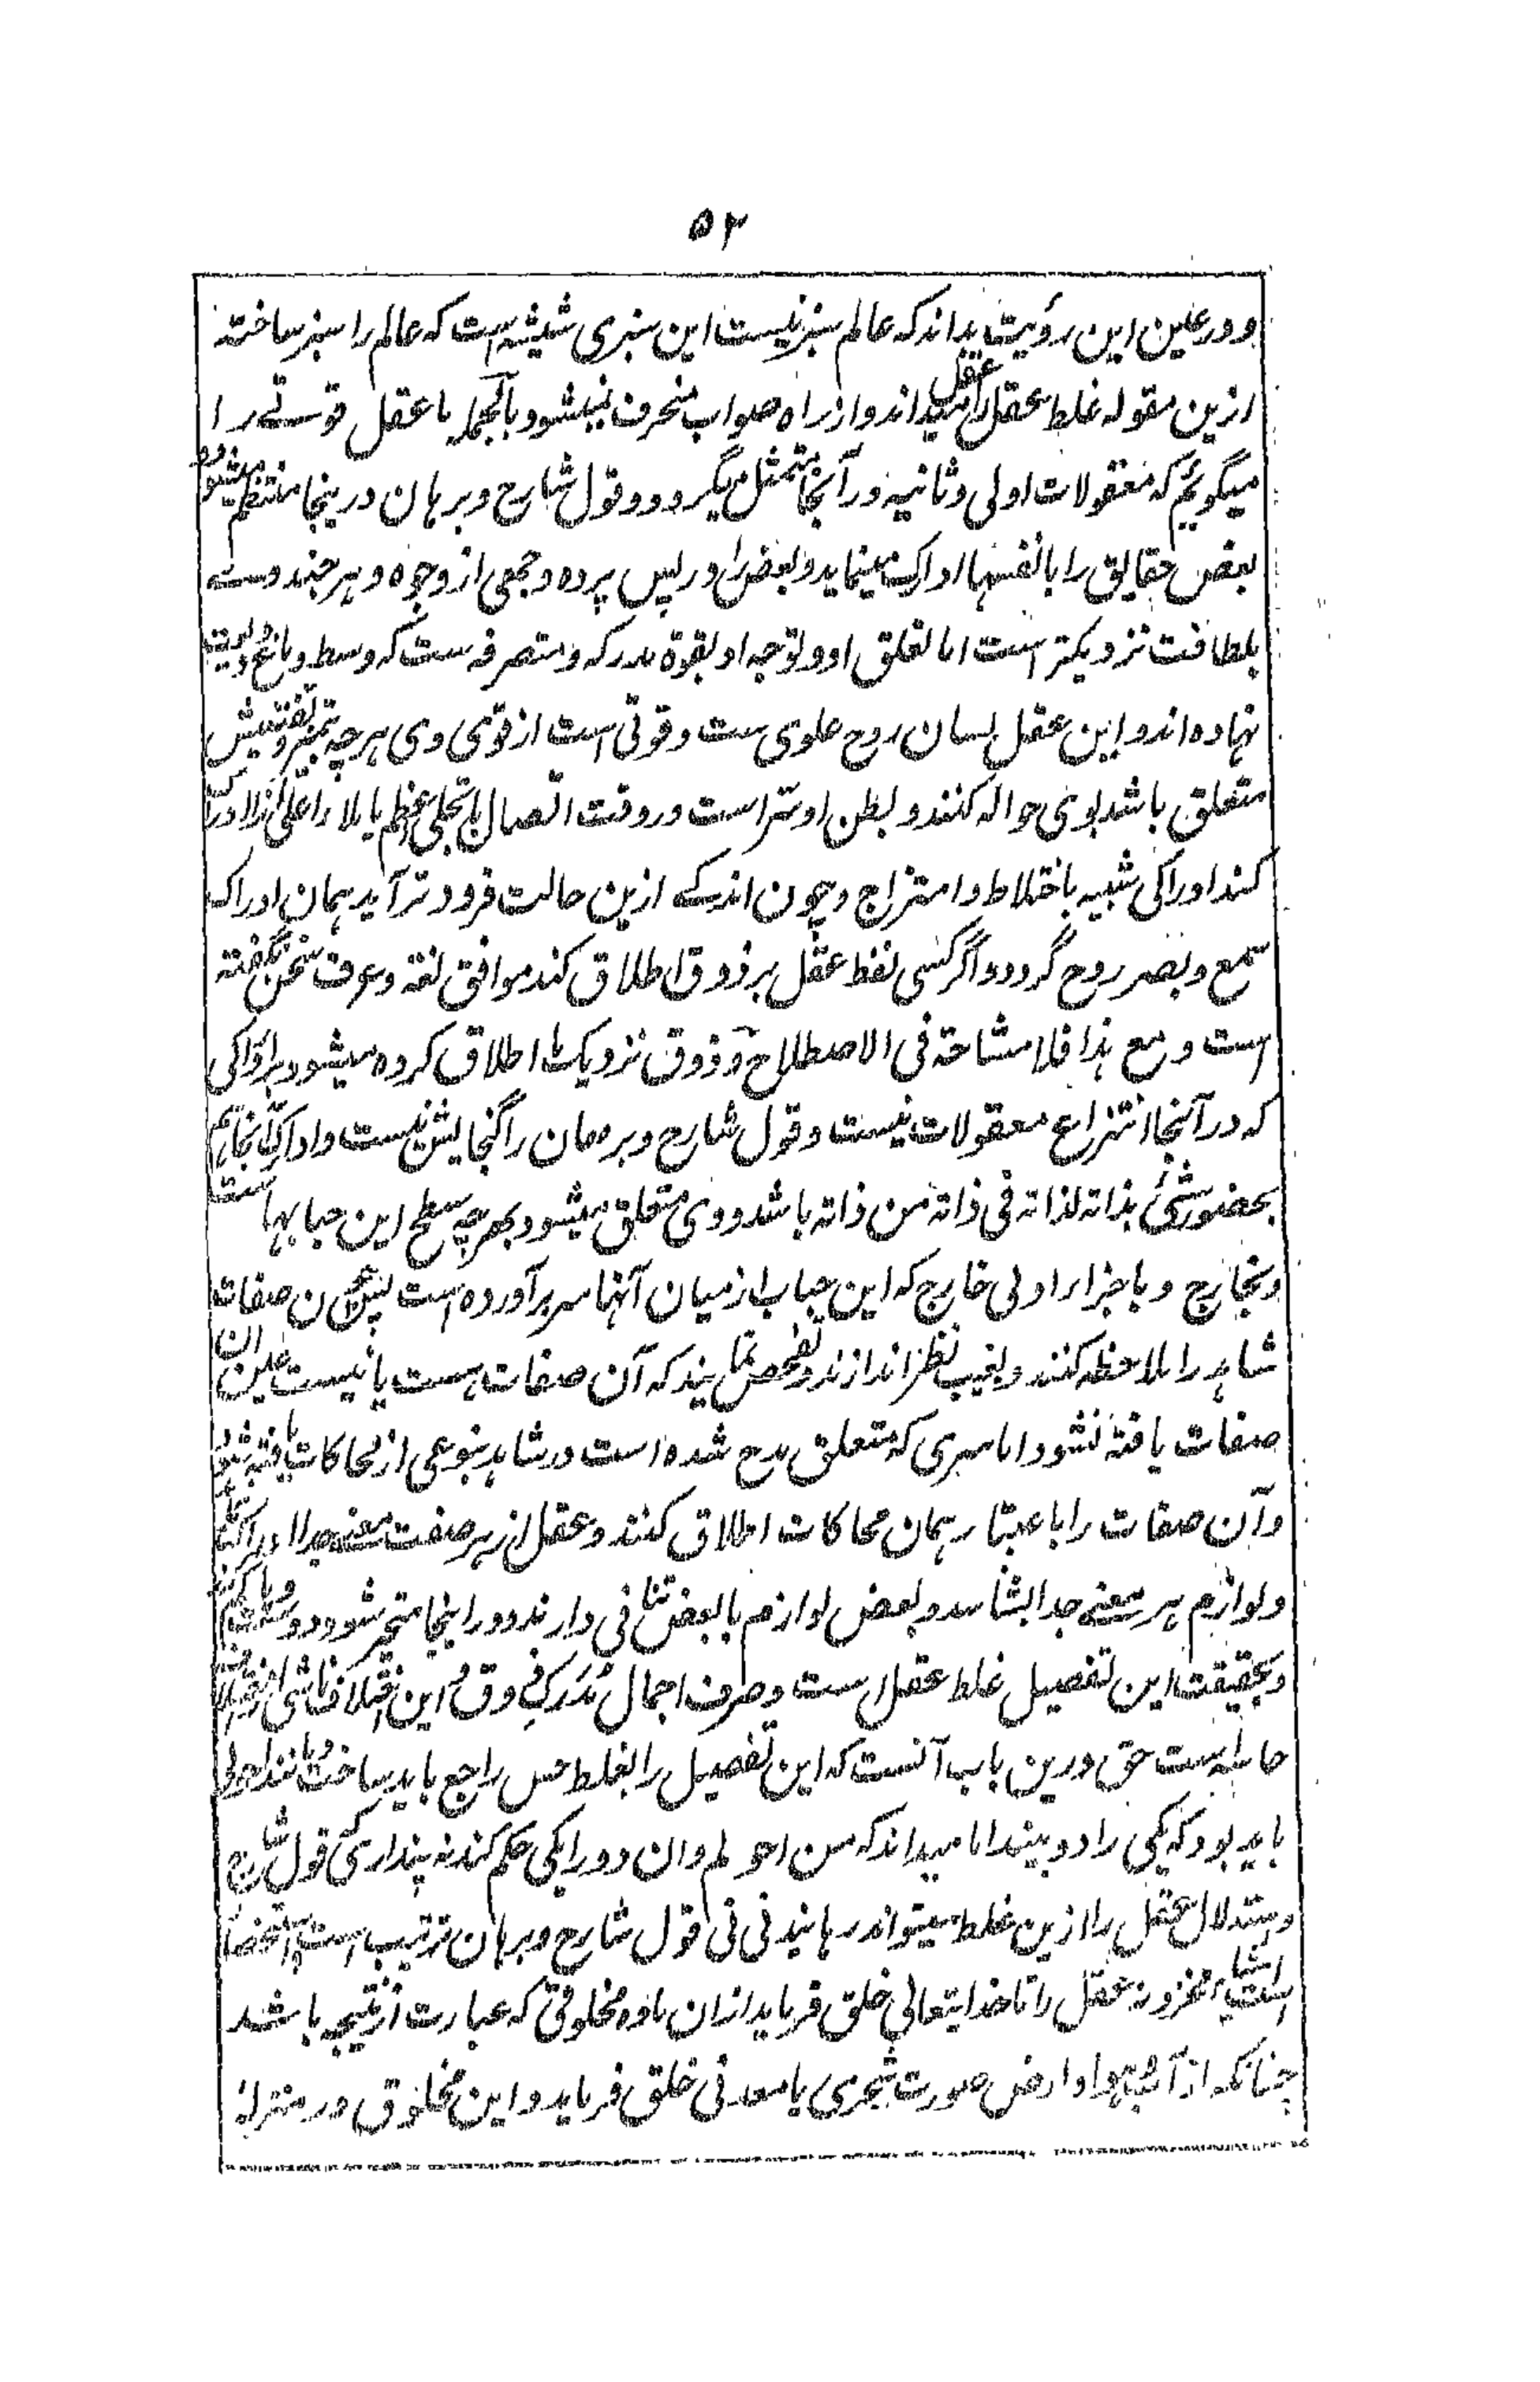 ۵۲
و در عین این رؤیت بداند که عالم سبز نیست این سبزی شیشه است که عالم را سبز ساخته
ازین مقوله غلط عقل را عقل میداند و از راه صواب منحرف نمیشود بالجمله ما عقل قوتے را
میگوئیم که معقولات اولی و ثانیه در آنجا متمثل میگردد و قول شارح و برهان در ینجا منتظم میشود و
بعض حقایق را بانفسها ادراک مینماید و بعض را در پس پرده و جمعی از وجوه و هر چند وے
بلطافت نزدیکتر است اما تعلق او و توجه او بقوة مدرکه و متصرفه ست که وسط دماغ
نهاده اند و این عقل لسان روح علوی ست و قوتی است از قوی وی هر چه تمیز و تفتیش
متعلق باشد بوی حواله کنند و بطن او سر است در وقت اتصال با تجلی اعظم یا ملاء اعلی
کند ادراکی شبیه باختلاط و امتزاج و چون اندکے ازین حالت فرودتر آید همان ادراک
سمع و بصر روح گردد و اگر کسی لفظ عقل بر ذوق اطلاق کند موافق لغة و عرف سخن نگفته
است و مع هذا فلا مشاحة فی الاصطلاح و ذوق نزدیک ما اطلاق کرده میشود بر ادراکی
که در آنجا انتزاع معقولات نیست و قول شارح و برهان را گنجایش نیست و ادراک آنجا هم
بحضور شیٔ بذاته لذاته فی ذاته من ذاته باشد و وی متعلق میشود بهر چه سطح این حبابها است
و بخارج و باجزاء اولی خارج که این حباب از میان آنها سر برآورده است پس چون صفات
شاهد را ملاحظه کنند و بغیب نظر اندازند و تفحص نمایند که آن صفات هست یا نیست عین آن
صفات یافته نشود اما سری که متعلق مدح شده است در شاهد بنوعی از محاکات یافته شود
و آن صفات را باعتبار همان محاکات اطلاق کنند و عقل از هر صفت معنے جدا ادراک کند
و لوازم هر معنے جدا بشناسد و بعض لوازم با بعض تنافی دارند و در اینجا متحیر شود
و بحقیقت این تفصیل غلط عقل است و صرف اجمال مدرک ذوق و این اختلاف ناشی از
حاسه است حق درین باب آنست که این تفصیل را بغلط حس راجع باید ساخت و مانند احولی
باید بود که یکی را دو بیند اما میداند که من احولم و ان دو را یکی حکم کند نه پنداری که قول شارح
و استدلال عقل را ازین غلط میتواند رهانید نی نی قول شارح و برهان ترتیب است
اشیاء مخزونه عقل را تا خدایتعالی خلق فرماید ازان ماده مخلوقی که عبارت از نتیجه باشد
چنانکه از آب و هوا و ارض صورت شجری یا معدنی خلق فرماید و این مخلوق در منزلهٔ